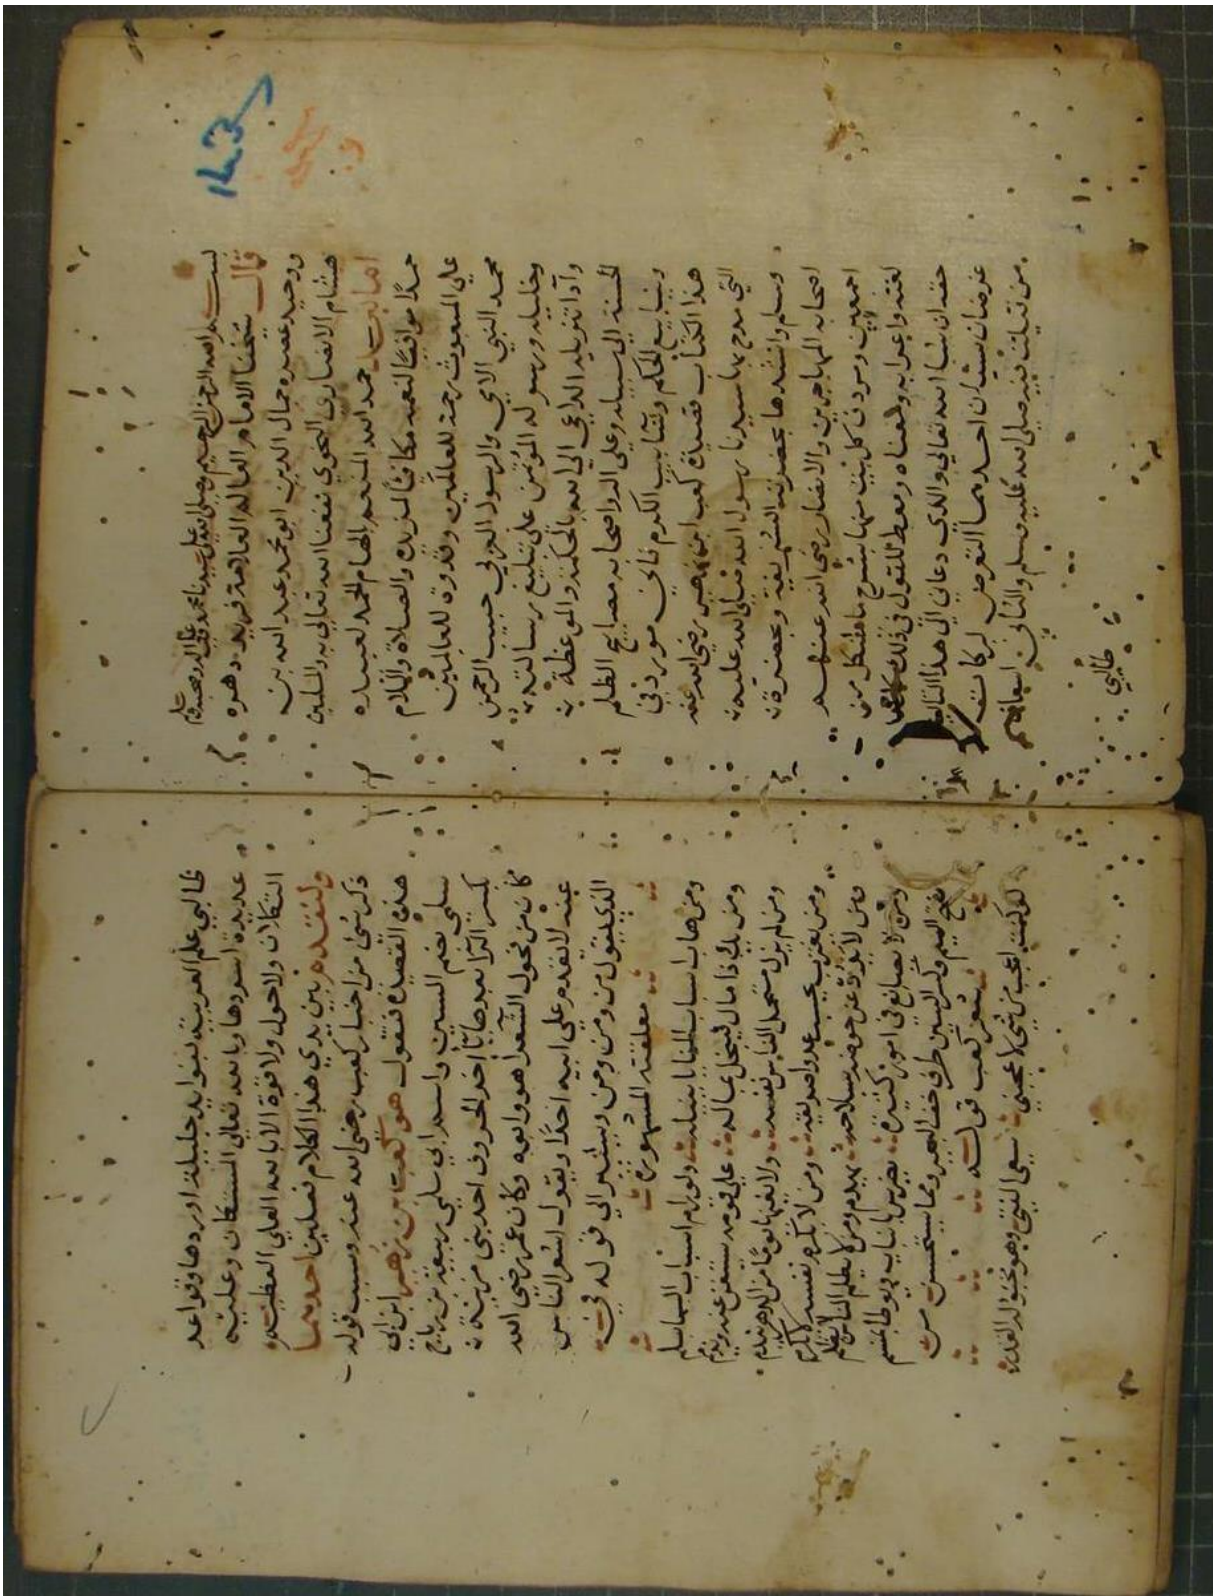 بسم الله الرحمن الرحيم وصلى الله على سيدنا محمد وعلى اله وصحبه وسلم
قال شيخنا الامام العالم العلامة فريد دهره
ووحيد عصره جمال الدين ابو محمد عبد الله بن
هشام الانصاري النحوي نفعنا الله تعالى به والمسلمين
اما بعد حمد الله المنعم بالهام الحمد لعبيده
حمدًا موافيًا لنعمه مكافيًا لمزيده والصلاة والسلام
على المبعوث رحمة للعالمين وقدوة للعالمين
محمد النبي الامي والرسول العربي حبيب الرحمن
وخليله ورسوله المؤتمن على تبليغ رسالته
وآداء تنزيله الداعي الى الله بالحكمة والموعظة
الحسنة الى سبيله وعلى اله واصحابه مصابيح الظلم
وينابيع الحكم وشآبيب الكرم فاني مورد في
هذا الكتاب قصيدة كعب ابن زهير رضي الله عنه
التي مدح بها سيدنا رسول الله صلى الله عليه
وسلم وانشدها بحضرته الشريفة وبحضرة
اصحابه المهاجرين والانصار رضي الله عنهم
اجمعين ومردف كل بيت منها بشرح ما يشكل من
لغته واعرابه ومعناه ومعط للقول في ذلك
حقه ان شاء الله تعالى والذي دعاني الى هذا التاليف
غرضان سنيان احدهما التعرض لبركات
من قيلت فيه صلى الله عليه وسلم والثاني اسعاف
طالبي
طالبي علم العربية بفوايد جليلة اوردها وقواعد
عديدة اسردها وبالله تعالى المستعان وعليه
التكلان ولا حول ولا قوة الا بالله العلي العظيم
ولنقدم بين يدي هذا الكلام فصلين احدهما
ذكر شئ من اخبار كعب رضي الله عنه وسبب قوله
هذه القصيدة فنقول هو كعب بن زهير ابن ابي
سلمى بضم السين واسم ابي سلمى ربيعة بن رياح
بكسر الراء بعدها ياء اخر الحروف احد بني مزينة
كان من فحول الشعرا هو وابوه وكان عمر رضي الله
عنه لا يقدم على ابيه احدًا ويقول اشعر الناس
الذي يقول من ومن ومن ويشير الى قوله في
معلقته المشهورة
ومن هاب اسباب المنايا ينلنه ولو رام اسباب السما بسلم
ومن يك ذا مال فيبخل بماله على قومه يستغن عنه ويذمم
ومن لم يزل مستحمل الناس نفسه ولا يغنها يومًا من الدهر يندم
ومن يغترب يحسب عدوا صديقه ومن لا يكرم نفسه لا يكرم
ومن لا يذد عن حوضه بسلاحه يهدم ومن لا يظلم الناس يظلم
ومن لا يصانع في امور كثيرة يضرس بانياب ويوطا بمنسم
بفتح الميم وكسر السين طرف خف البعير ومما يستحسن من
شعر كعب قوله
لو كنت اعجب من شئ لاعجبني سعي الفتى وهو مخبو له القدر